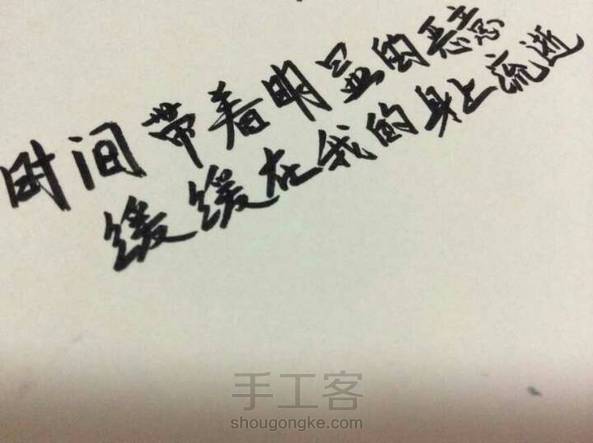 时间带着明显的恶意
缓缓在我的身上流逝
手工客
shougongke.com